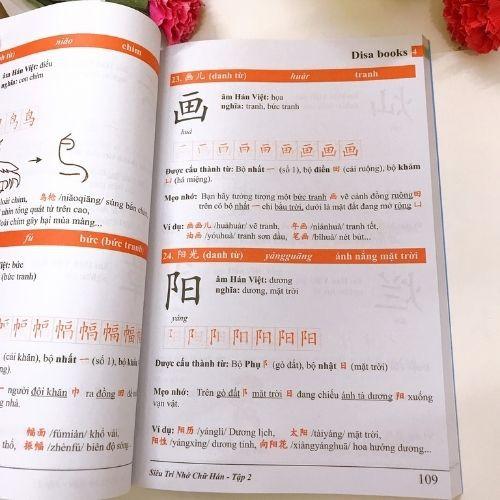 từ) niǎo chim
âm Hán Việt: điểu
nghĩa: con chim
鸟 鸟
loài chim, 鸟枪 /niǎoqiāng/ súng bắn chim,
nhìn tổng quát từ trên cao,
loài chim gây hại mùa màng...
fú bức (bức tranh)
Việt: bức
(bức tranh)
帕 幅 幅 幅 幅 幅
(cái khăn), bộ nhất 一 (số 1), bộ khẩu
người đội khăn 巾 ra đồng 田
幅面 /fúmiàn/ khổ vải,
thổ, 振幅 /zhènfú/ biên độ sóng...
Disa books 4
23. 画儿 (danh từ) huàr tranh
画
huà
âm Hán Việt: họa
nghĩa: tranh, bức tranh
画 画 画
Được cấu thành từ: Bộ nhất 一 (số 1), bộ điền 田 (cái ruộng), bộ khảm
凵 (há miệng).
Mẹo nhớ: Bạn hãy tưởng tượng một bức tranh 画 vẽ cánh đồng ruộng 田
trên có bộ nhất 一 chỉ bầu trời, dưới là mặt đất đang mở rộng 凵
Ví dụ: 画画儿 /huàhuàr/ vẽ tranh, 年画 /niánhuà/ tranh tết,
油画 /yóuhuà/ tranh sơn dầu, 笔画 /bǐhuà/ nét bút...
24. 阳光 (danh từ) yángguāng ánh nắng mặt trời
阳
yáng
âm Hán Việt: dương
nghĩa: dương, mặt trời
阳 阳 阳
Được cấu thành từ: Bộ Phụ 阝 (gò đất), bộ nhật 日 (mặt trời)
Mẹo nhớ: Trên gò đất 阝 mặt trời 日 đang chiếu ánh tà dương 阳 xuống
vạn vật.
Ví dụ: 阳历 /yánglì/ Dương lịch, 太阳 /tàiyáng/ mặt trời,
阳性 /yángxìng/ dương tính, 向阳花 /xiàngyánghuā/ hoa hướng dương...
Siêu Trí Nhớ Chữ Hán - Tập 2
109